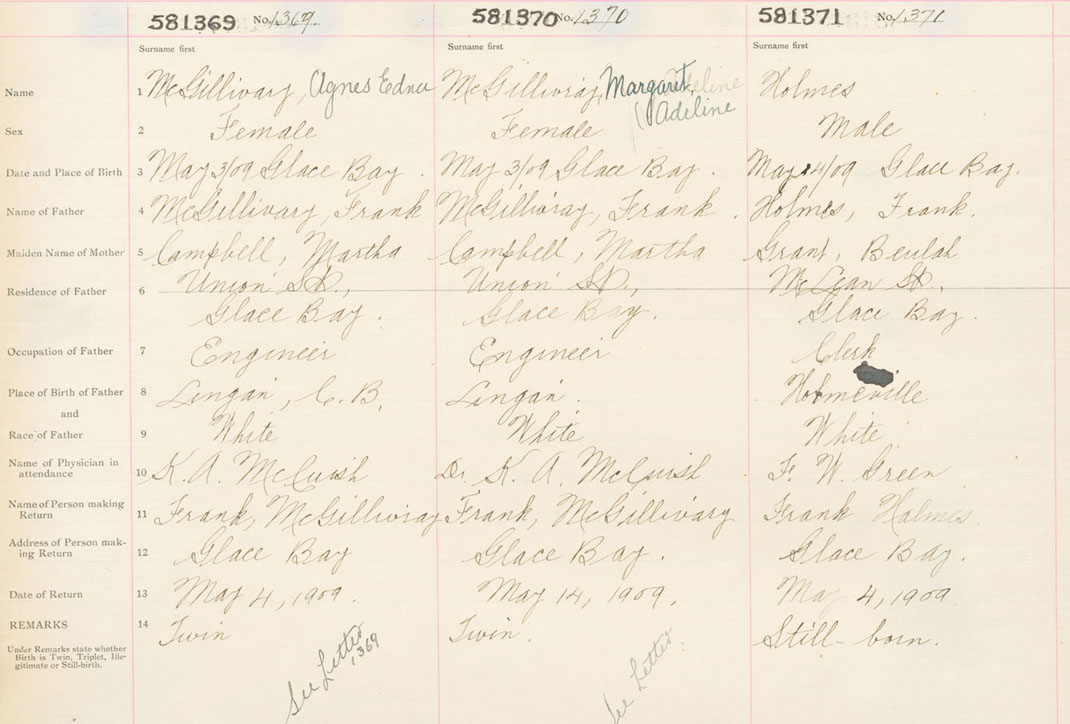 581369 No. 1369. 581370 No. 1370 581371 No. 1371
Surname first Surname first Surname first
Name 1 McGillivary, Agnes Edna McGillivray, Margaret Holmes
(Adeline
Sex 2 Female Female Male
Date and Place of Birth 3 May 3/09 Glace Bay. May 3/09 Glace Bay. May 4/09 Glace Bay.
Name of Father 4 McGillivary, Frank McGillivray, Frank. Holmes, Frank.
Maiden Name of Mother 5 Campbell, Martha Campbell, Martha Grant, Beulah
Residence of Father 6 Union St., Union St., McLean St.,
Glace Bay. Glace Bay. Glace Bay.
Occupation of Father 7 Engineer Engineer Clerk
Place of Birth of Father 8 Lingan, C.B. Lingan. Holmeville
and
Race of Father 9 White White White
Name of Physician in
attendance 10 K. A. McCuish Dr. K. A. McCuish F. W. Green
Name of Person making
Return 11 Frank, McGillivray Frank, McGillivary Frank Holmes.
Address of Person mak-
ing Return 12 Glace Bay Glace Bay. Glace Bay.
Date of Return 13 May 4, 1909. May 14, 1909. May 4, 1909.
REMARKS 14 Twin Twin. Still-born.
Under Remarks state whether
Birth is Twin, Triplet, Ille-
gitimate or Still-birth.
See Letter
1369
See Letter